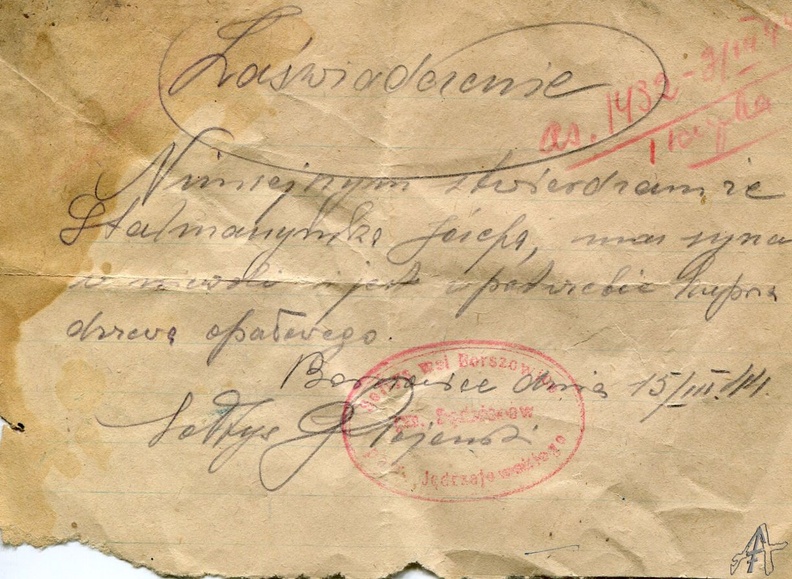 Zaświadczenie
as. 1432 - 9/III 44
Niniejszym stwierdzam że
Stalmaszyńska Józefa, ma syna
w niewoli i jest w potrzebie kupna
drzewa opałowego.
Borszowice dnia 15/III.44.
Sołtys
Sołtys wsi Borszowice
gm. Sędziszów
pow. Jędrzejowskiego